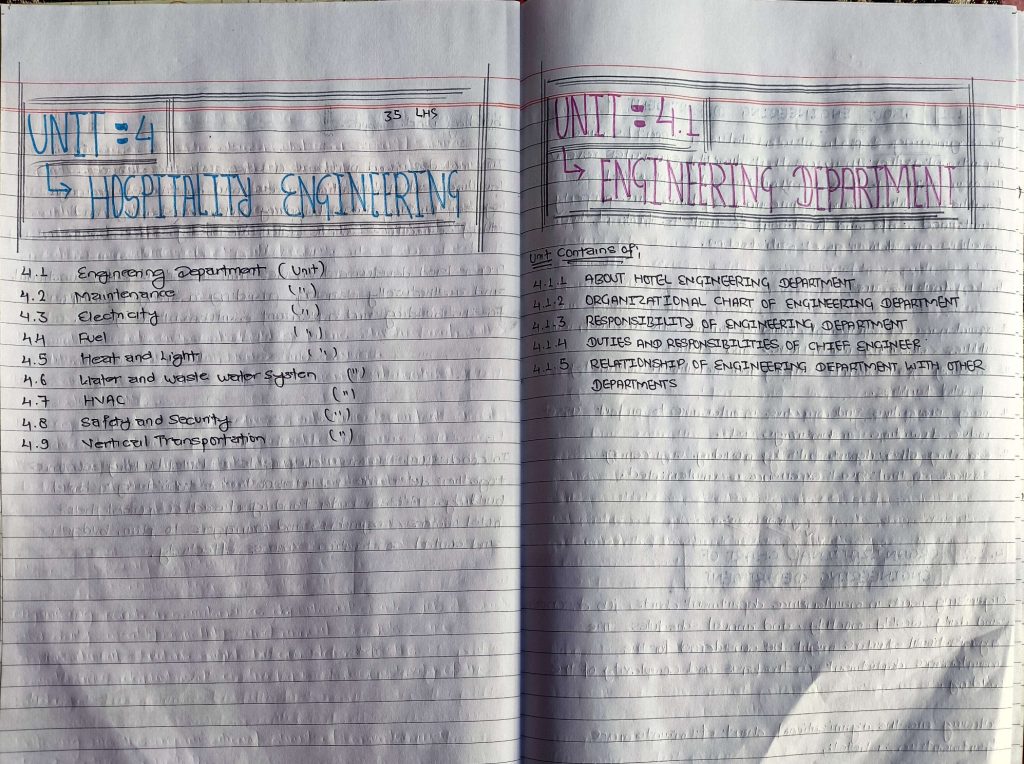 35 LHS
UNIT = 4
↳ HOSPITALITY ENGINEERING
4.1 Engineering Department (Unit)
4.2 Maintenance (")
4.3 Electricity (")
4.4 Fuel (")
4.5 Heat and Light (")
4.6 Water and waste water System (")
4.7 HVAC (")
4.8 Safety and Security (")
4.9 Vertical Transportation (")
UNIT = 4.1
↳ ENGINEERING DEPARTMENT
Unit Contains of;
4.1.1 ABOUT HOTEL ENGINEERING DEPARTMENT
4.1.2 ORGANIZATIONAL CHART OF ENGINEERING DEPARTMENT
4.1.3 RESPONSIBILITY OF ENGINEERING DEPARTMENT
4.1.4 DUTIES AND RESPONSIBILITIES OF CHIEF ENGINEER
4.1.5 RELATIONSHIP OF ENGINEERING DEPARTMENT WITH OTHER
DEPARTMENTS